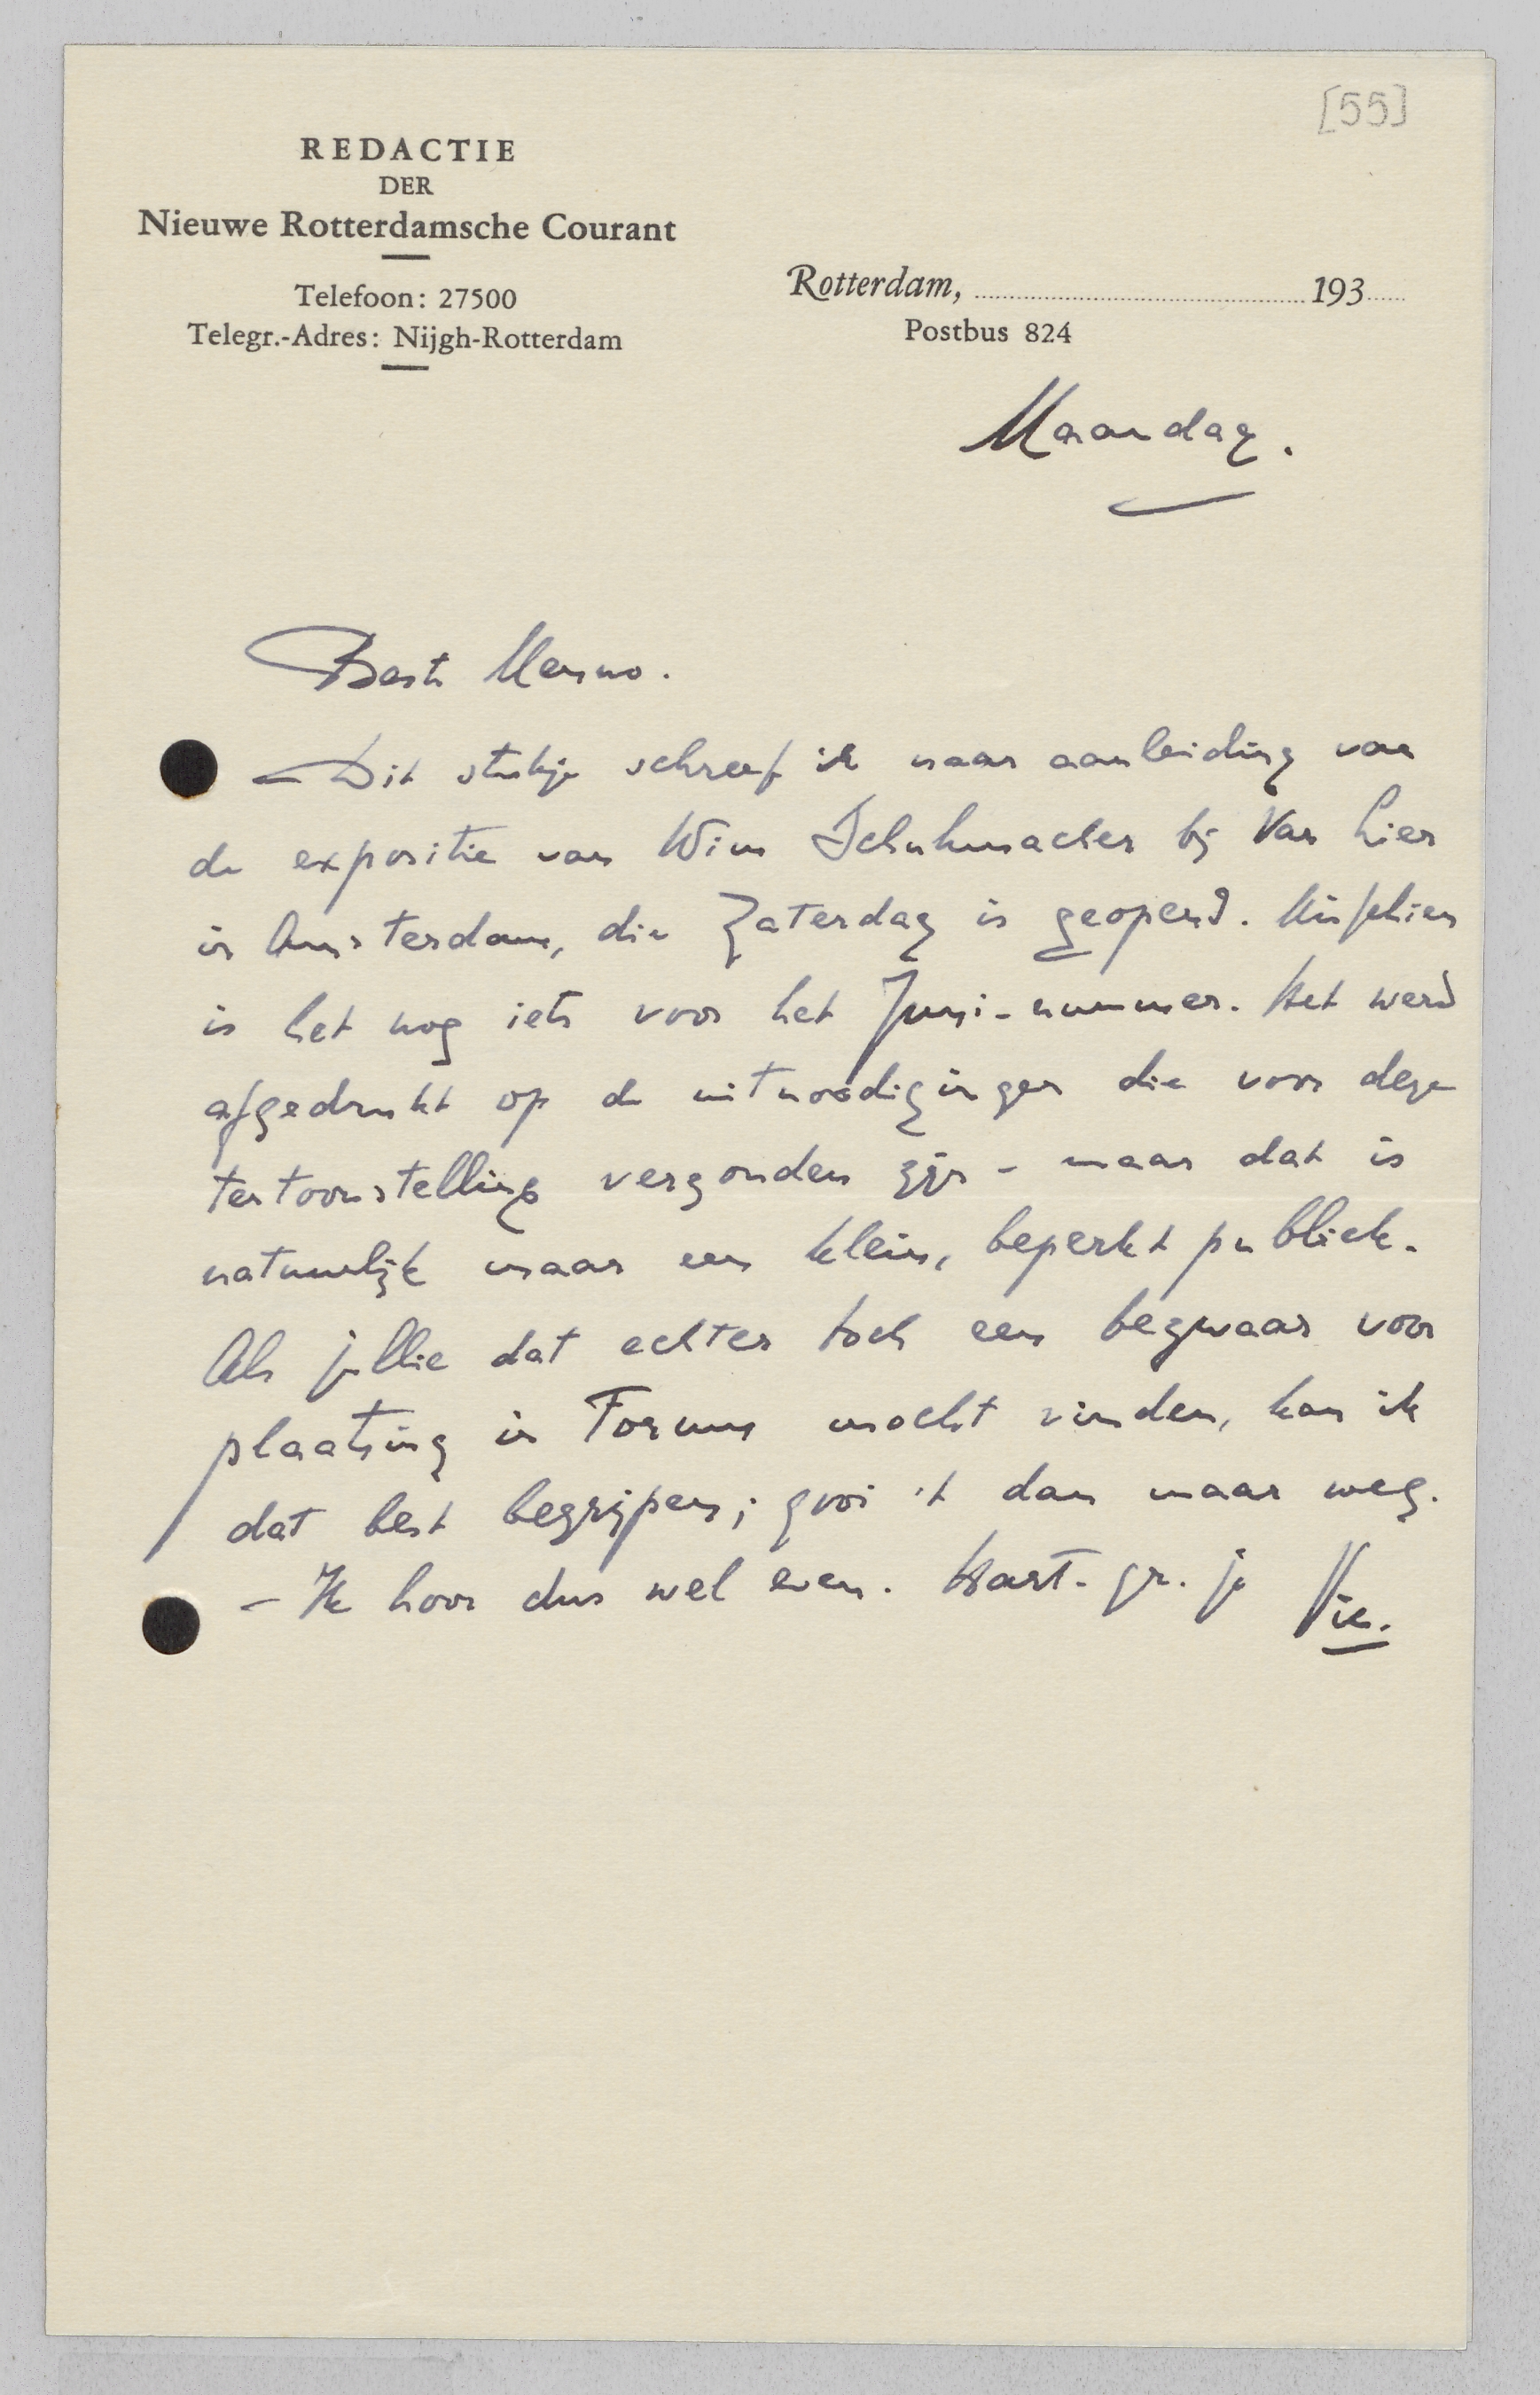 [55]
REDACTIE
DER
Nieuwe Rotterdamsche Courant
Telefoon: 27500
Telegr.-Adres: Nijgh-Rotterdam
Rotterdam, 193
Postbus 824
Maandag.
Beste Menno.
— Dit stukje schreef ik naar aanleiding van
de expositie van Wim Schuhmacher bij Van Lier
in Amsterdam, die Zaterdag is geopend. Misschien
is het nog iets voor het Juni-nummer. Het werd
afgedrukt op de uitnoodigingen die voor deze
tentoonstelling verzonden zijn – maar dat is
natuurlijk maar een klein, beperkt publiek.
Als jullie dat echter toch een bezwaar voor
plaatsing in Forum mocht vinden, kan ik
dat best begrijpen; gooi 't dan maar weg.
– Ik hoor dus wel even. Hart. gr. je Vic.